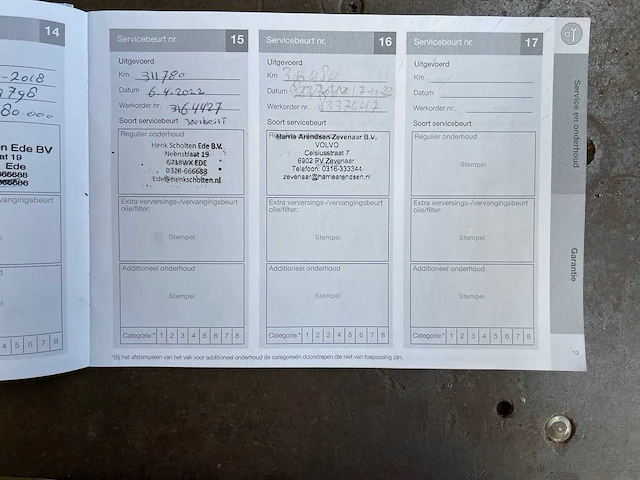 14
-2018
80.000
en Ede BV
at 19
Ede
vervangingsbeurt
4 5 6 7 8
Servicebeurt nr. 15
Uitgevoerd
Km 311780
Datum 6-4-2022
Werkorder nr. 3164427
Soort servicebeurt
Regulier onderhoud
Henk Scholten Ede B.V.
Neonstraat 19
6718WX EDE
0318-666688
Ede@henkscholten.nl
Extra verversings-/vervangingsbeurt
olie/filter:
Stempel
Additioneel onderhoud
Stempel
Categorie:* 1 2 3 4 5 6 7 8
Servicebeurt nr. 16
Uitgevoerd
Km
Datum
Werkorder nr.
Soort servicebeurt
Harrie Arendsen Zevenaar B.V.
VOLVO
Celsiusstraat 7
6902 PV Zevenaar
Telefoon: 0316-333344
zevenaar@harriearendsen.nl
Extra verversings-/vervangingsbeurt
olie/filter:
Stempel
Additioneel onderhoud
Stempel
Categorie:* 1 2 3 4 5 6 7 8
Servicebeurt nr. 17
Uitgevoerd
Km
Datum
Werkorder nr.
Soort servicebeurt
Regulier onderhoud
Stempel
Extra verversings-/vervangingsbeurt
olie/filter:
Stempel
Additioneel onderhoud
Stempel
Categorie:* 1 2 3 4 5 6 7 8
*Bij het afstempelen van het vak voor additioneel onderhoud de categorieën doorstrepen die niet van toepassing zijn.
Service en onderhoud
Garantie
19